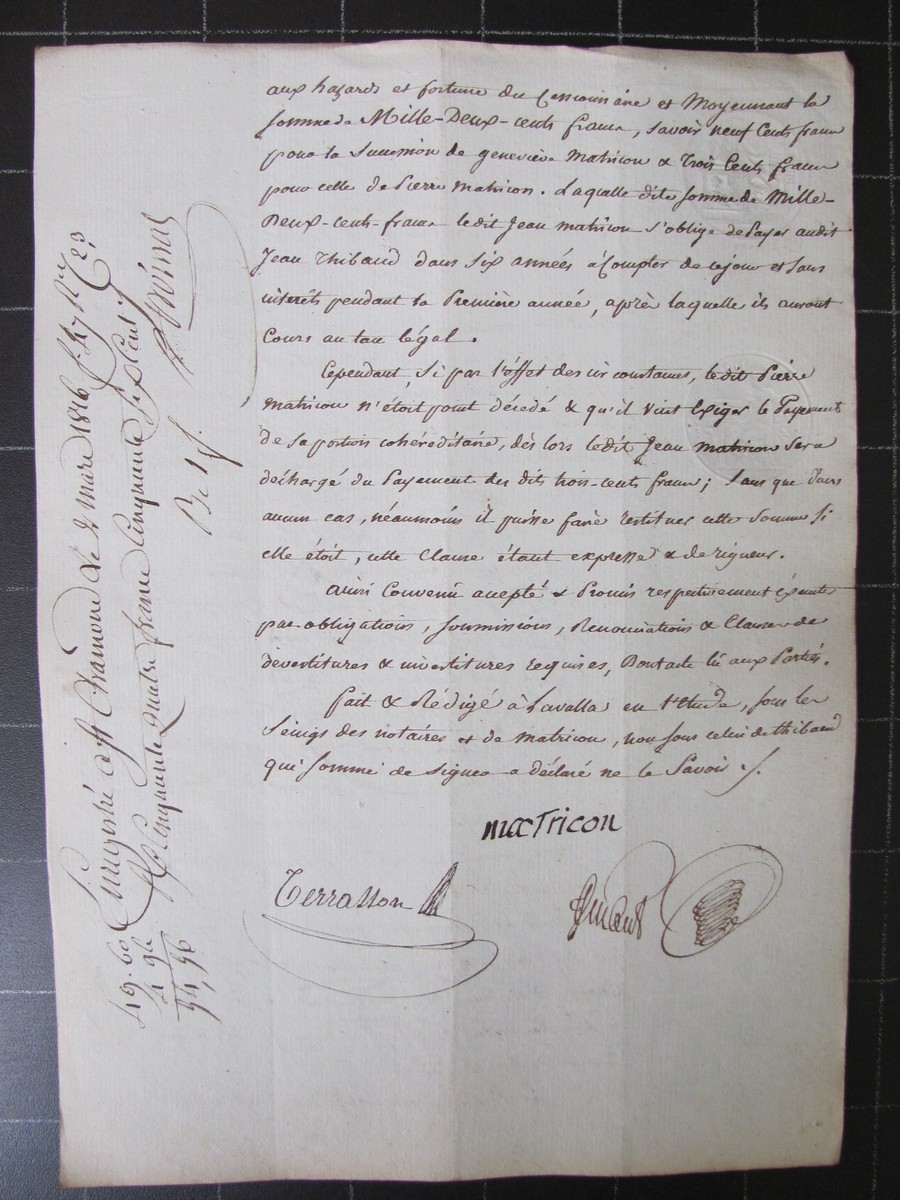 aux hazards et fortune du Cessionnaire et Moyennant la
Somme de Mille-Deux-cents francs, savoir neuf Cents francs
pour la Succession de geneviève Matricon & Trois Cents francs
pour celle de Pierre matricon. Laquelle dite Somme de Mille-
Deux-cents-francs ledit Jean matricon s'oblige de Payer audit
Jean Thibaud dans Six années à Compter de ce jour et Sans
interêts pendant la Première année, après laquelle ils auront
Cours au taux légal.
Cependant, Si par l'éffet des circonstances, le dit Pierre
Matricon n'étoit point décedé & qu'il vint Exiger le Payement
de Sa portion cohéréditaire, dès lors le dit Jean matricon Sera
déchargé du Payement des dits trois-cents francs; Sans que dans
aucun cas, néaumoins il puisse faire restituer cette Somme Si
elle étoit, cette Clause étant expresse & de rigueur.
Ainsi Convenu accepté & Promis respectivement
par obligations, soumissions, Renonciations & Clauses de
dévestitures & investitures requises, Dont acte lû aux Parties.
fait & Rédigé à Lavalla en l'étude, Sous les
Seings des notaires et de Matricon, non Sous celui de thibaud
qui Sommé de Signer a déclaré ne le Savoir ./.
matricon
Terrasson
Enregistré à St Chamond Le mars 1816 f. 47
Cinquante Quatre francs Cinquante Six Cent.
49.60
54,56